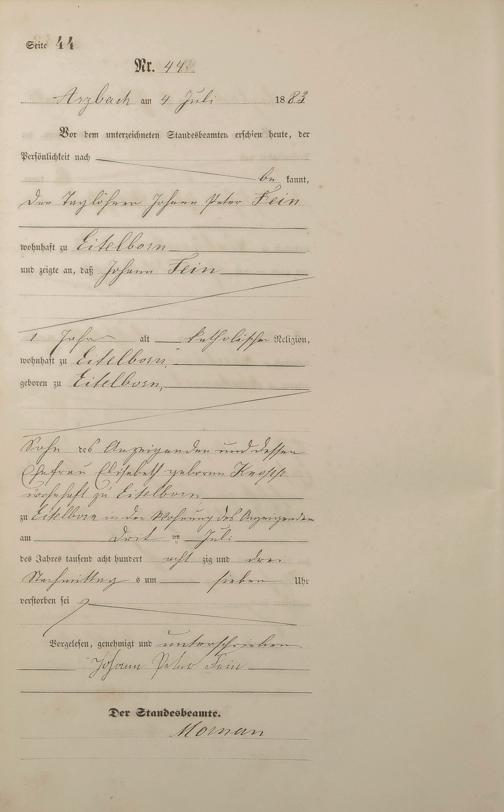 Seite 44
Nr. 44.
Arzbach am 4 Juli 1883
Vor dem unterzeichneten Standesbeamten erschien heute, der
Persönlichkeit nach
be kannt,
den Taglöhner Johann Peter Fein
wohnhaft zu Eitelborn
und zeigte an, daß Johann Fein
1 Jahr alt katholischer Religion,
wohnhaft zu Eitelborn,
geboren zu Eitelborn,
Sohn des Anzeigenden und dessen
Ehefrau Elisabeth geborene
wohnhaft zu Eitelborn
zu Eitelborn in der Wohnung des Anzeigenden
am Juli
des Jahres tausend acht hundert acht zig und drei
Nachmittag s um sieben Uhr
verstorben sei
Vorgelesen, genehmigt und unterschrieben
Johann Peter Fein
Der Standesbeamte.